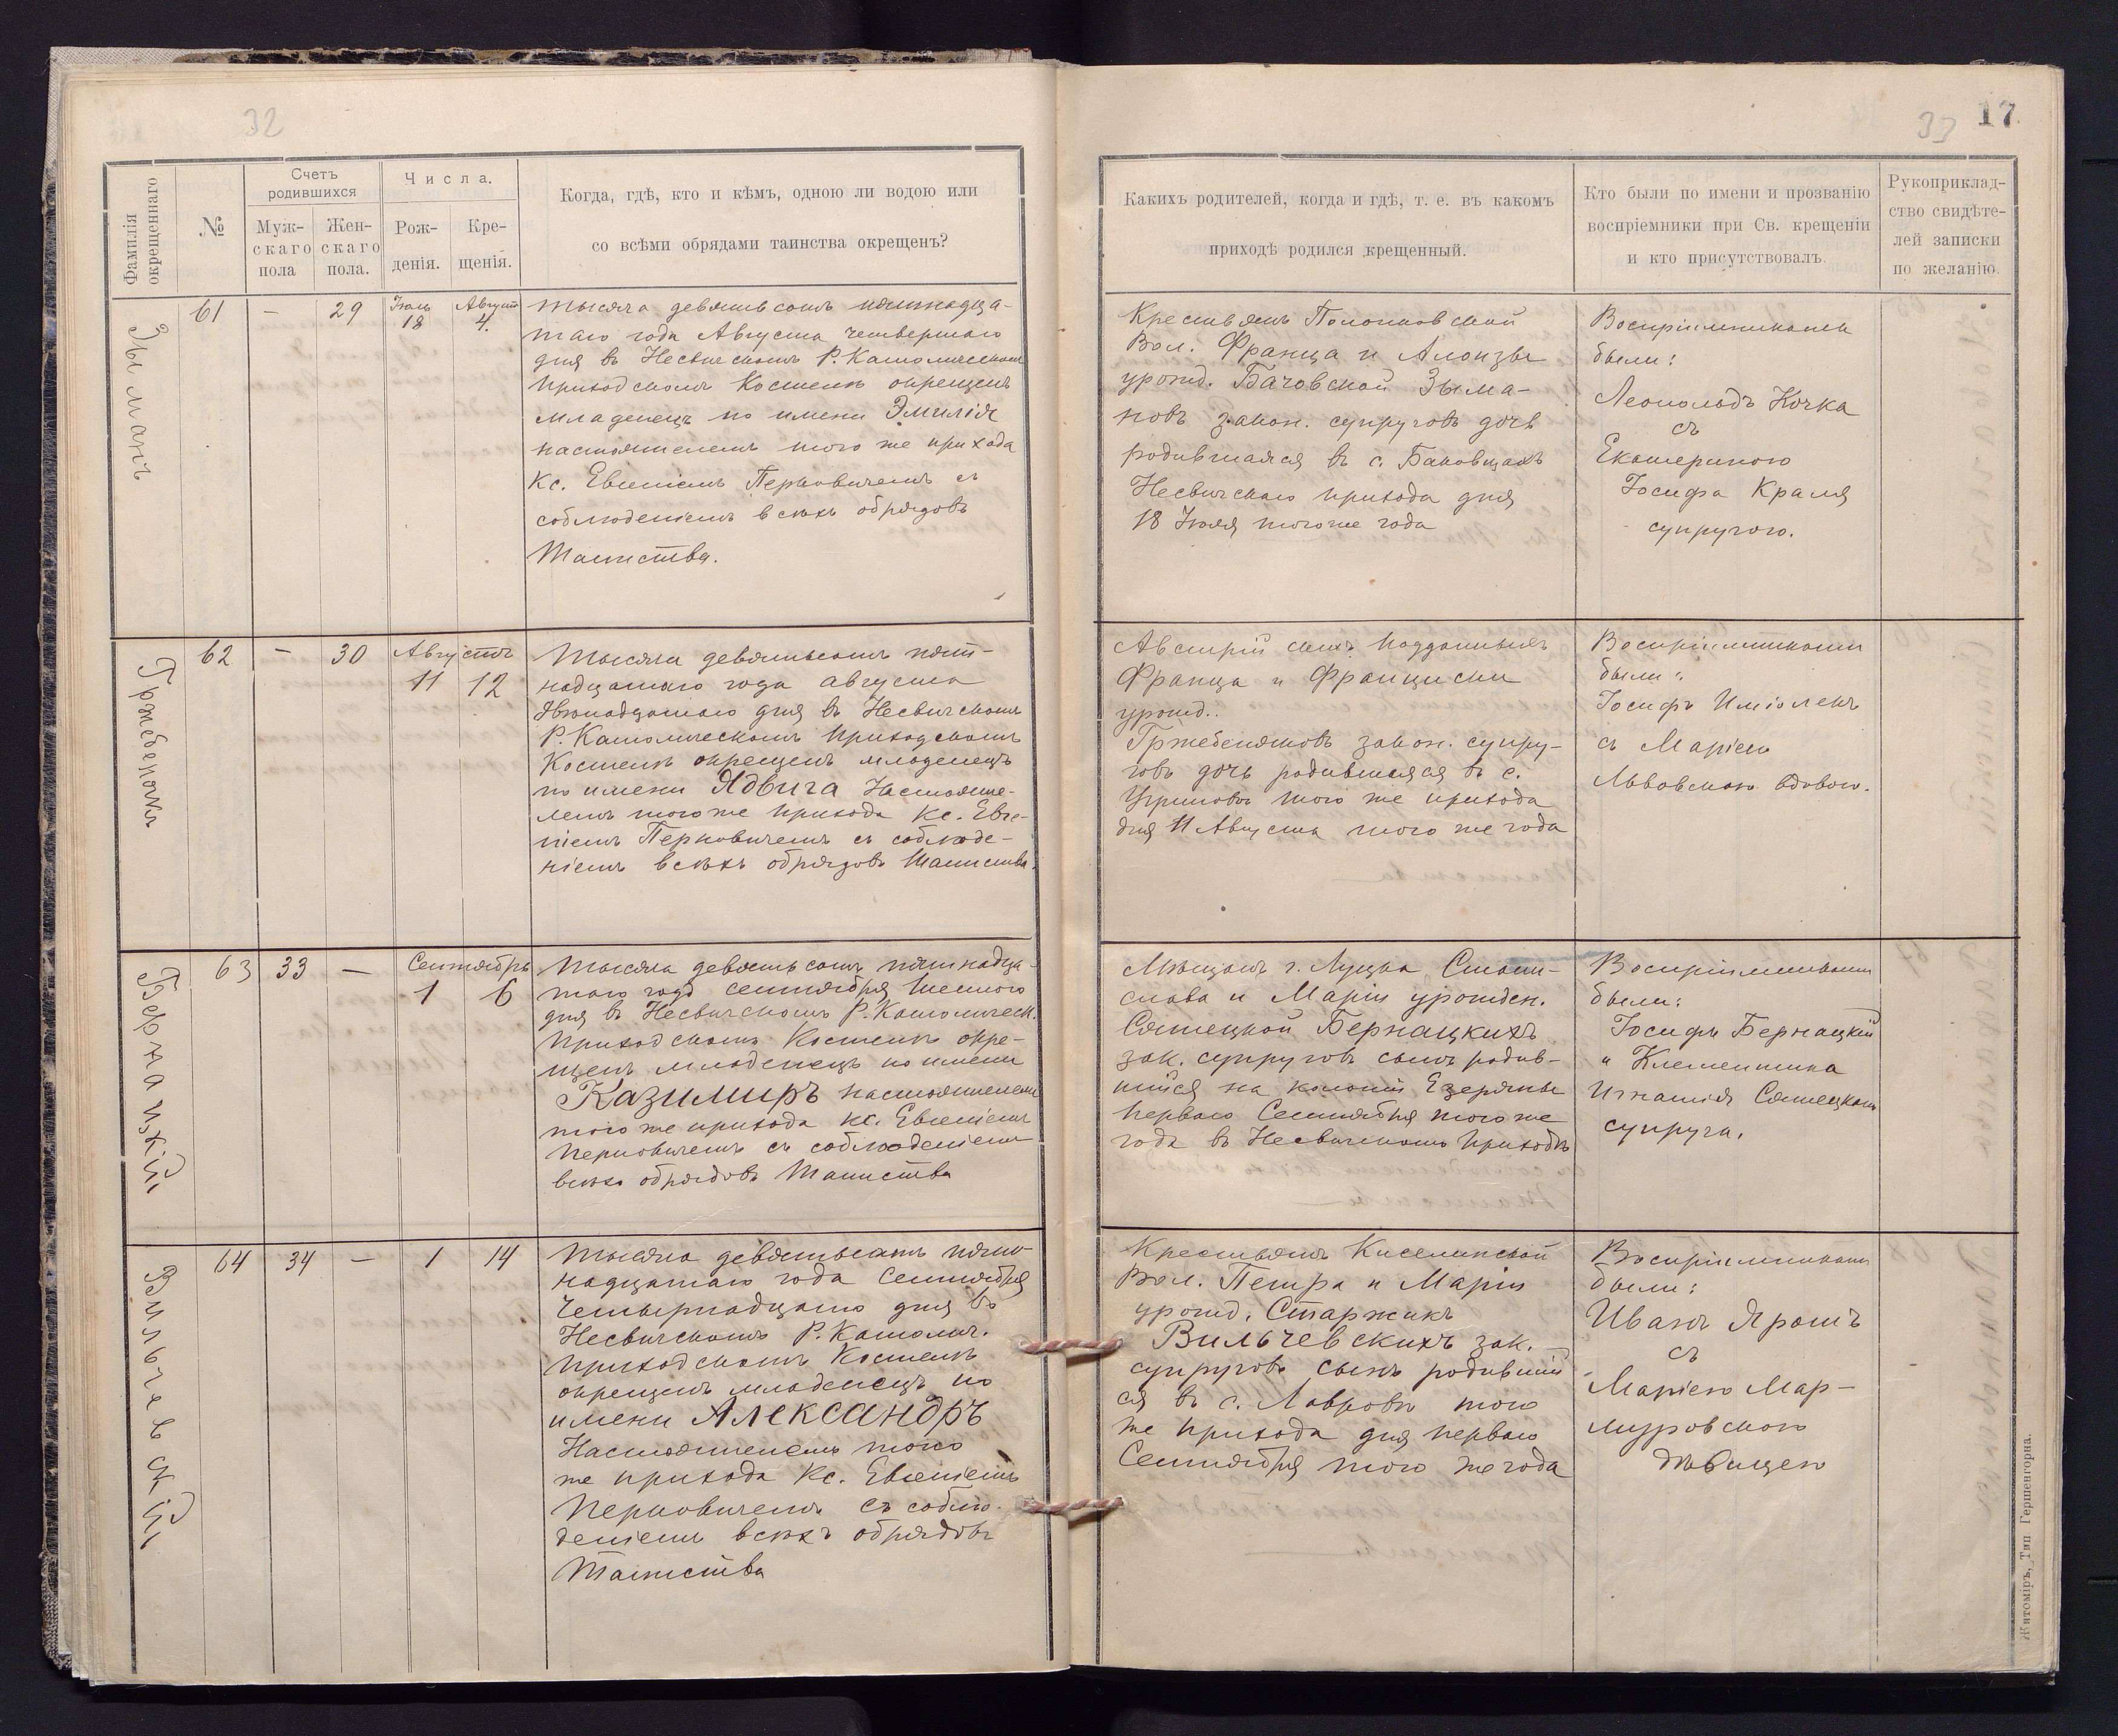 32
Фамилія окрещеннаго
№
Счетъ родившихся
Муж-
скаго
пола
Жен-
скаго
пола.
Числа.
Рож-
денія.
Кре-
щенія.
Когда, гдѣ, кто и кѣмъ, одною ли водою или
со всѣми обрядами таинства окрещенъ?
Зыманъ
61
—
29
Іюль
18
Августъ
4.
Тысяча девятьсотъ пятнадца-
таго года Августа четвертаго
дня въ Несвичскомъ Р. Католическомъ
приходскомъ Костелѣ окрещенъ
младенецъ по имени Эмилія
настоятелемъ того же прихода
Кс. Евгеніемъ Перковичемъ съ
соблюденіемъ всѣхъ обрядовъ
Таинства.
62
—
30
Августъ
11
12
Тысяча девятьсотъ пят-
надцатаго года августа
двѣнадцатаго дня въ Несвичскомъ
Р. Католическомъ приходскомъ
Костелѣ окрещенъ младенецъ
по имени Ядвига Настояте-
лемъ того же прихода Кс. Евге-
ніемъ Перковичемъ съ соблюде-
ніемъ всѣхъ обрядовъ Таинства.
Бернацкій,
63
33
—
Сентябрь
1
6
Тысяча девятьсотъ пятнадца-
таго года сентября шестого
дня въ Несвичскомъ Р. Католическ.
приходскомъ Костелѣ окре-
щенъ младенецъ по имени
Казимиръ настоятелемъ
того же прихода кс. Евгеніемъ
Перковичемъ съ соблюденіемъ
всѣхъ обрядовъ Таинства
Вильчевскій,
64
34
—
1
14
Тысяча девятьсотъ пятн-
надцатаго года Сентября
Четырнадцаго дня въ
Несвичскомъ Р. Католич.
приходскомъ Костелѣ
окрещенъ младенецъ по
имени Александръ
Настоятелемъ того
же прихода Кс. Евгеніемъ
Перковичемъ съ соблю-
деніемъ всѣхъ обрядовъ
Таинства
33
17
Какихъ родителей, когда и гдѣ, т. е. въ какомъ
приходѣ родился крещенный.
Кто были по имени и прозванію
воспріемники при Св. крещеніи
и кто присутствовалъ.
Рукоприклад-
ство свидѣте-
лей записки
по желанію.
Крестьянъ Полонковской
Вол. Франца и Алоизы
урожд. Бачовской Зыма-
новъ закон. супруговъ дочь
родившаяся въ с. Баковцахъ
Несвичскаго прихода дня
18 Іюля того же года
Воспріемниками
были:
Леопольдъ Кочка
съ
Екатериною
Іосифа Краля
супругою.
Австрійскихъ подданныхъ
Франца и Франциски
урожд..
Гржебенякovъ закон. супру-
говъ дочь родившаяся въ с.
Угриновѣ того же прихода
дня 11 Августа того же года
Воспріемниками
были:
Іосифъ Иміоленъ
съ Маріею
Львовскою вдовою.
Мѣщанъ г. Луцка Стани-
слава и Маріи урожден.
Сятецкой Бернацкихъ
зак. супруговъ сынъ родив-
шійся на колоніи Езеряны
перваго Сентября того же
года въ Несвичскомъ приходѣ
Воспріемниками
были:
Іосифъ Бернацкій
и Клементина
Игнатія Сятецкаго
супруга.
Крестьянъ Киселинской
Вол. Петра и Маріи
урожд. Старжикъ
Вильчевскихъ зак.
супруговъ сынъ родившій
ся въ с. Лавровѣ того
же прихода дня перваго
Сентября того же года
Воспріемниками
были:
Иванъ Ярошъ
съ
Маріею Мар-
муровскою
дѣвицею
Житоміръ, Тип Гершенгорна.